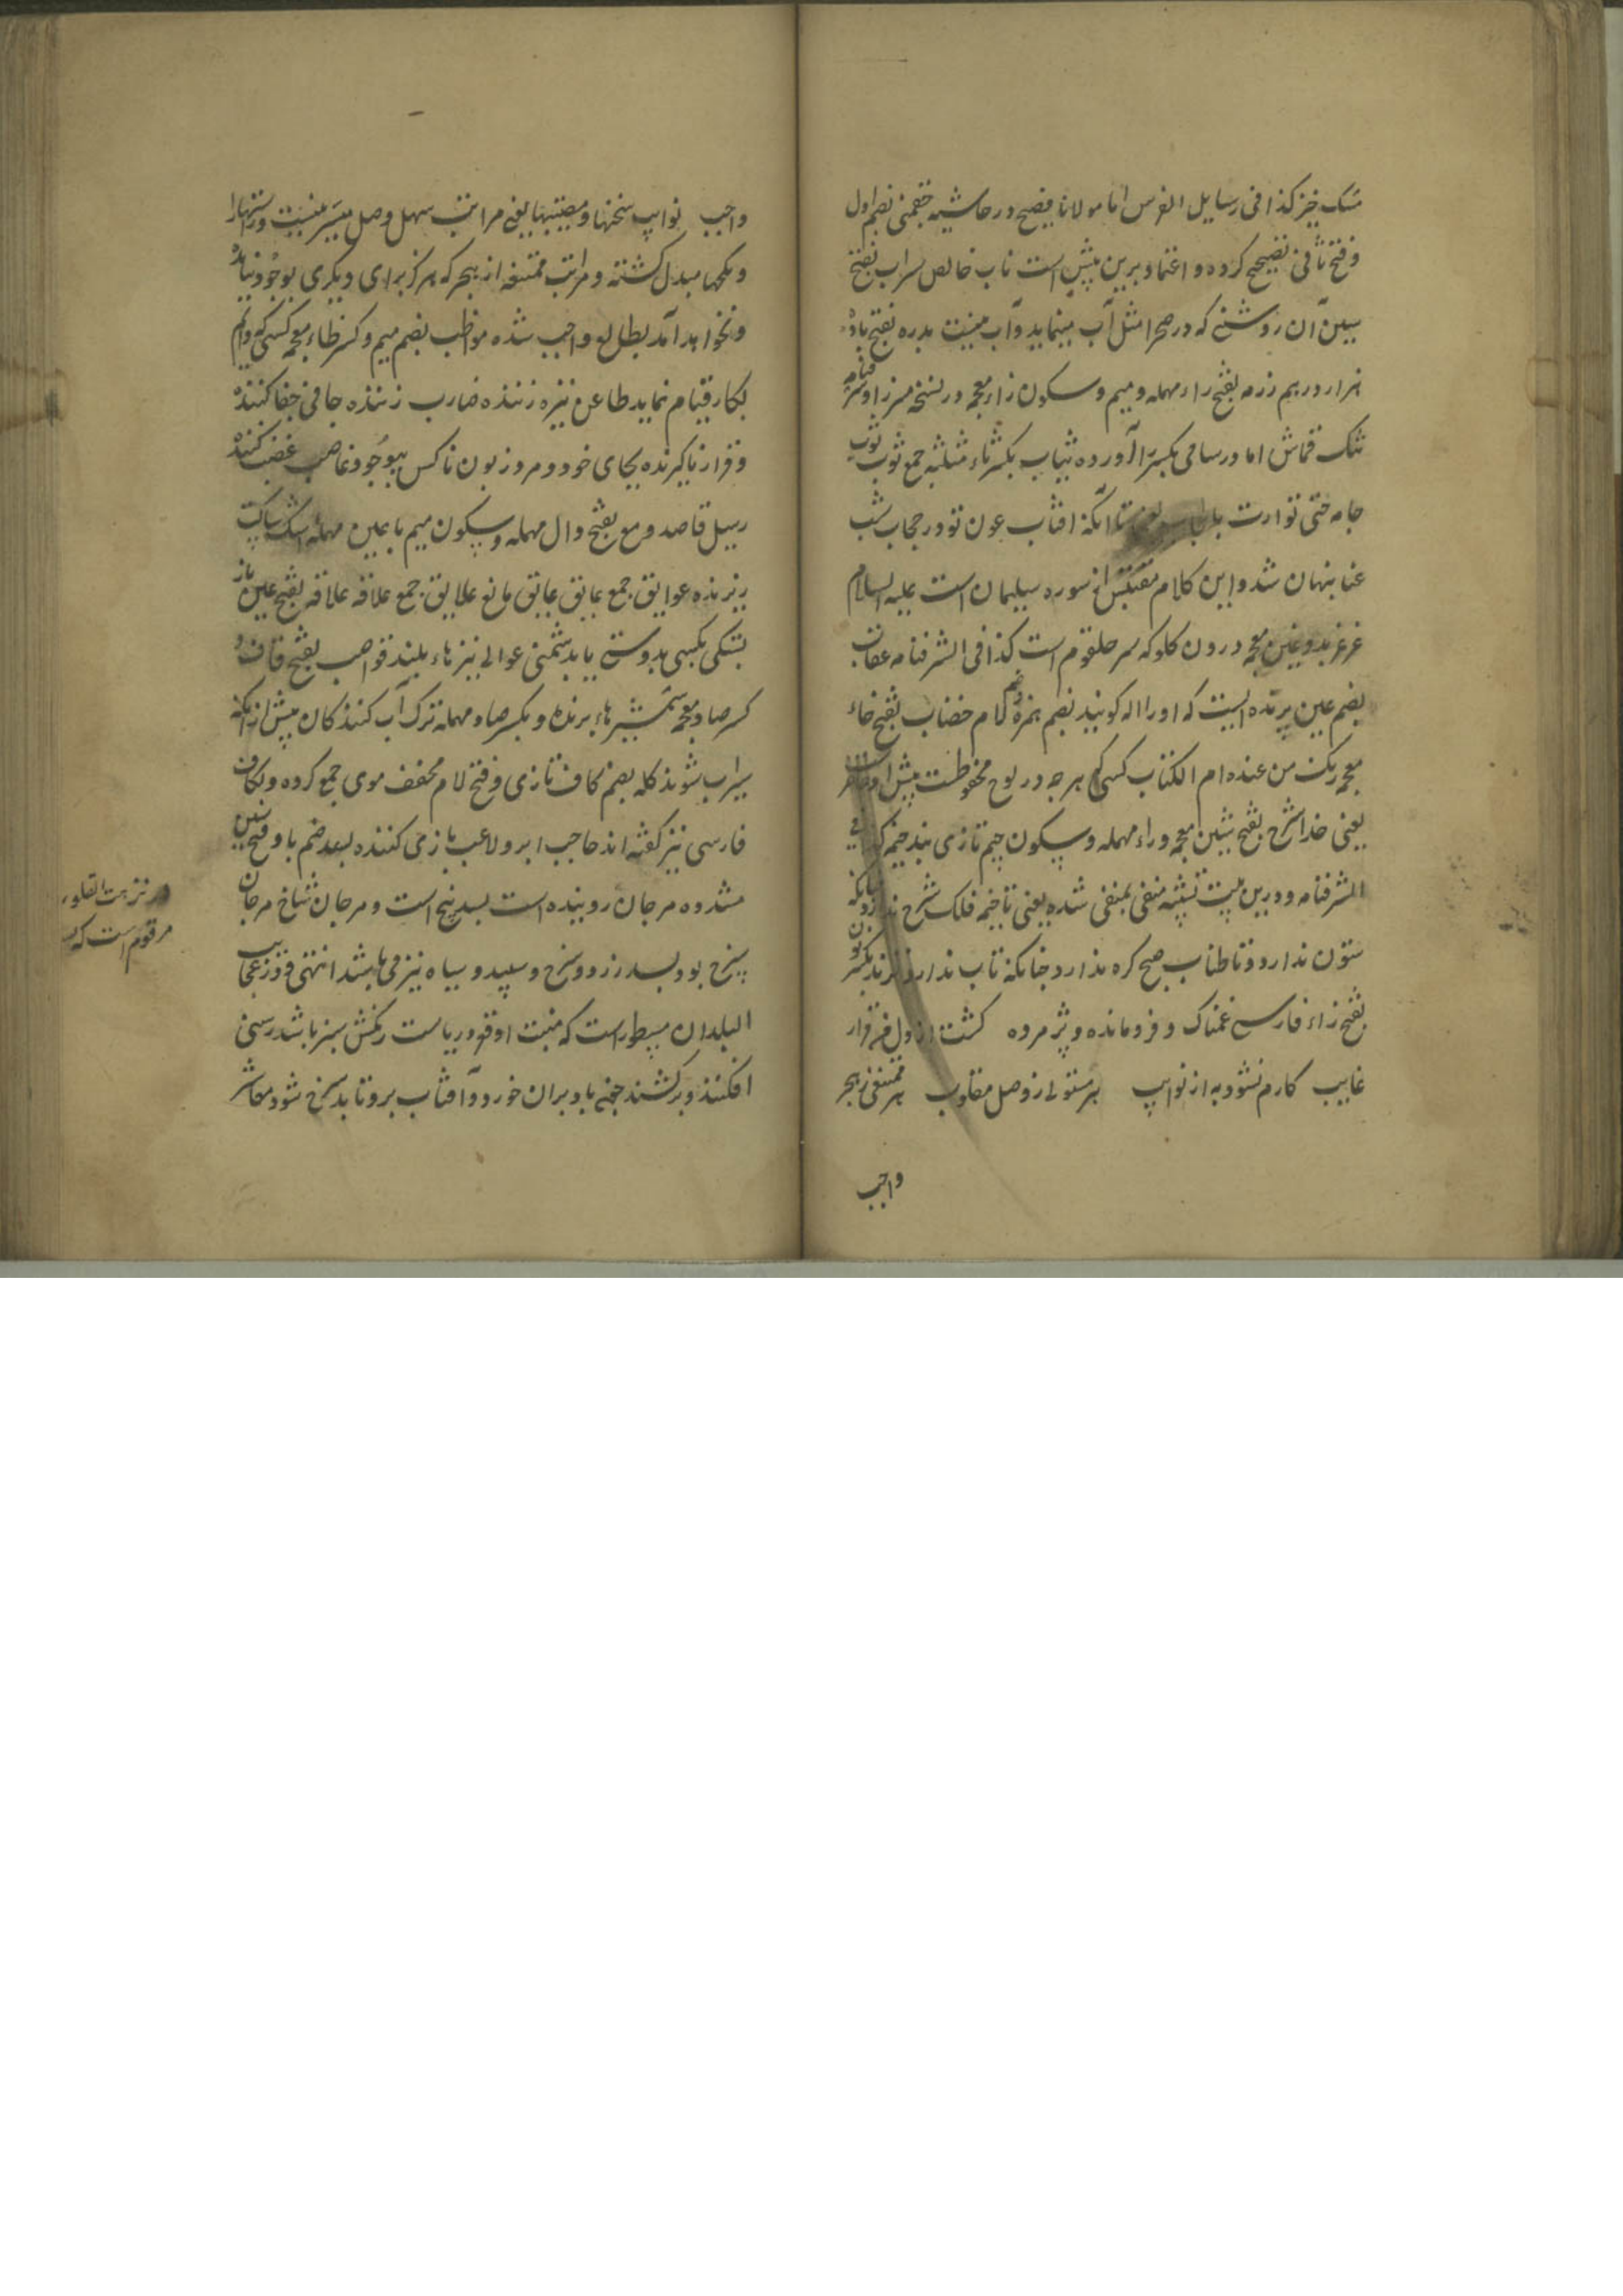 مسک خیز کذا فی رسایل الفرس اما مولانا فصیح در حاشیه چغمنی بضم اول
و فتح ثانی تصحیح کرده و اعتماد برین بیش است ناب خالص سراب بفتح
سین آن روشنی که در صحرا مثل آب مینماید و آب نیست بدره بفتح با ده
هزار درهم رزمه بفتح راء مهمله و میم و سکون زاء معجمه در نسخه میرزا و شرفنامه
تنگ قماش اما در سامی بکسر را آورده ثیاب بکسر ثاء مثلثه جمع ثوب ثوب
جامه حتی توارت بالحجاب یعنی تا آنکه افتاب عون تو در حجاب شب
عنا پنهان شد و این کلام مقتبس از سوره سلیمان است علیه السلام
غرغر بدو غین معجمه درون کلو که سر حلقوم است کذا فی الشرفنامه عقاب
بضم عین پرنده ایست که او را اله کویند بضم همزه و ضم لام خضاب بفتح خاء
معجمه رنک من عنده ام الکتاب کسی که هر چه در لوح محفوظست پیش او ظاهر است
یعنی خدا شرج بفتح شین معجمه و راء مهمله و سکون جیم تازی بند خیمه کذا فی
الشرفنامه و درین بیت تشبیه منفی بمنفی شده یعنی تا خیمه فلک شرج ندارد چنانکه
ستون ندارد و تا طناب صبح کره ندارد چنانکه تاب ندارد نژند بکسر نون و
بفتح زاء فارسی غمناک و فرومانده و پژمرده کشت از دل من قرار
غایب کارم نشود به از نوایب بر مستولی ز وصل مقلوب هر ممتنعی ز هجر
واجب
واجب نوایب سختیها و مصیبتها یعنی مراتب سهل وصل میسر نیست و به تنهایی
و تلخیها مبدل کشته و مراتب ممتنعه از هجر که هرکز برای دیکری بوجود نیامده
و نخواهد آمد بطالع واجب شده مواظب بضم میم و کسر ظاء معجمه کسی که دایم
بکار قیام نماید طاعن نیزه زننده ضارب زننده جافی جفا کننده
و قرار ناکیرنده بجای خود و مرد زبون ناکس بیوجود غاصب غضب کننده
رسیل قاصد دمع بفتح دال مهمله و سکون میم با عین مهمله اشک ساکب
ریزنده عوایق جمع عایق عایق مانع علایق جمع علاقه علاقه بفتح عین باز
بستکی بکسی بدوستی یا بدشمنی عوالی نیزهاء بلند قواضب بفتح قاف و
کسر ضاد معجمه شمشیرهاء برنده و بکسر صاد مهمله ترک آب کنندکان پیش از آنکه
سیراب شوند کله بضم کاف تازی و فتح لام مخفف موی جمع کرده و بکاف
فارسی نیز کفته اند حاجب ابرو لاعب بازی کننده بسد ضم با و فتح سین
مشدده مرجان روینده است بسد بیخ است و مرجان شاخ مرجان
سرخ بود بسد زرد و سرخ و سپید و سیاه نیز می باشد انتهی و در عجایب
البلدان مسطور است که منبت او قعر دریاست رنکش سبز باشد رسنی
افکنند و برکشند چون باد بران خورد و آفتاب برو تابد سرخ شود معاشر
در نزهت القلوب
مرقوم است که